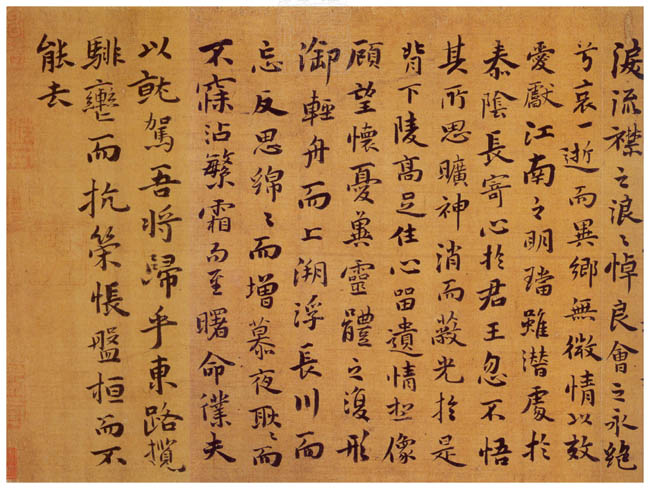 淚流襟之浪〻悼良會之永絕
兮哀一逝而異鄉無微情以效
愛獻江南之明璫雖潛處於
泰陰長寄心於君王忽不悟
其所思曠神消而蔽光於是
背下陵高足住心留遺情想像
顧望懷憂冀靈體之復形
御輕舟而上溯浮長川而
忘反思綿〻而增慕夜耿〻而
不寐沾繁霜而至曙命僕夫
以就駕吾將歸乎東路攬
騑轡而抗策悵盤桓而不
能去